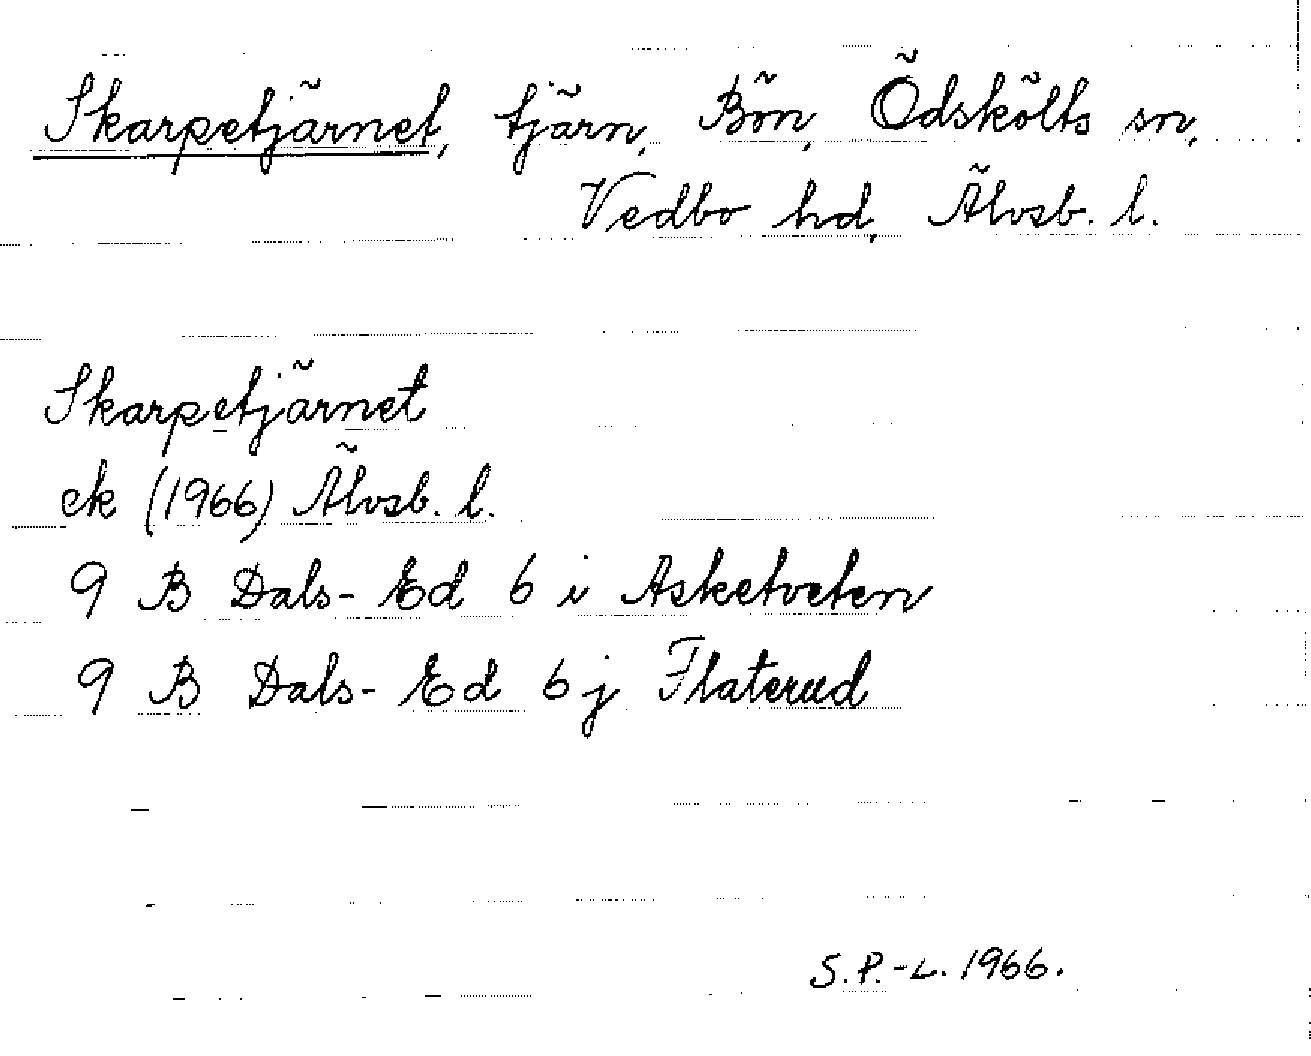 Skarpetjärnet, tjärn, Bön, Ödskölts sn,
Vedbo hd, Älvsb. l.
Skarpetjärnet
ek (1966) Älvsb. l.
9 B Dals-Ed 6 i Asketveten
9 B Dals-Ed 6 j Flaterud
S.P.-L. 1966.